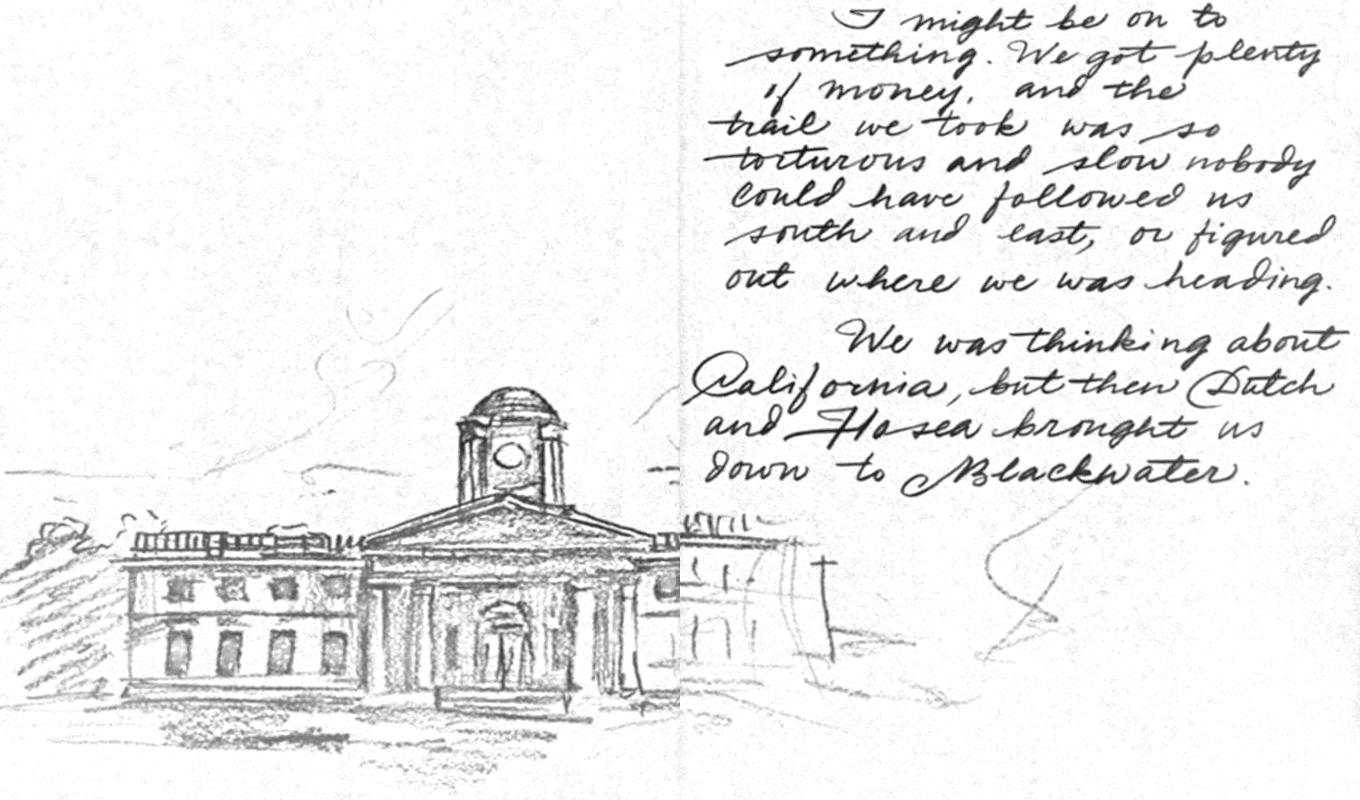 I might be on to
something. We got plenty
if money, and the
trail we took was so
torturous and slow nobody
could have followed us
south and east, or figured
out where we was heading.
We was thinking about
California, but then Dutch
and Hosea brought us
down to Blackwater.